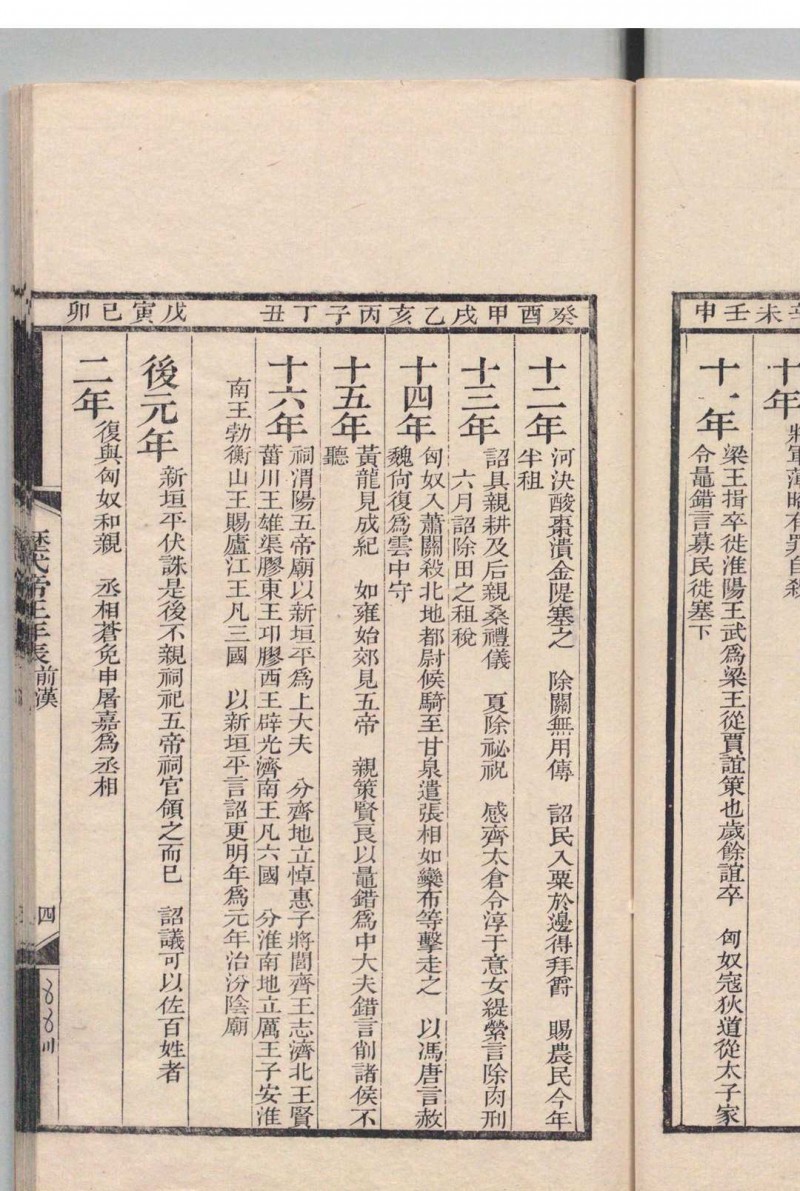 未壬申
十年
將軍薄昭有罪自殺
十一年
梁王揖卒徙淮陽王武爲梁王從賈誼策也歲餘誼卒　匈奴寇狄道從太子家
令鼂錯言募民徙塞下
癸酉甲戌乙亥丙子丁丑
戊寅已卯
十二年
河決酸棗潰金隄塞之　除關無用傳　詔民入粟於邊得拜爵　賜農民今年
半租
十三年
詔具親耕及后親桑禮儀　夏除祕祝　感齊太倉令淳于意女緹縈言除肉刑
六月詔除田之租稅
十四年
匈奴入蕭關殺北地都尉候騎至甘泉遣張相如欒布等擊走之　以馮唐言赦
魏尙復爲雲中守
十五年
黃龍見成紀　如雍始郊見五帝　親策賢良以鼂錯爲中大夫錯言削諸侯不
聽
十六年
祠渭陽五帝廟以新垣平爲上大夫　分齊地立悼惠子將閭齊王志濟北王賢
菑川王雄渠膠東王卭膠西王辟光濟南王凡六國　分淮南地立厲王子安淮
南王勃衡山王賜廬江王凡三國　以新垣平言詔更明年爲元年治汾陰廟
後元年
新垣平伏誅是後不親祠祀五帝祠官領之而已　詔議可以佐百姓者
二年
復與匈奴和親　丞相蒼免申屠嘉爲丞相
歷代帝王年表
前漢
四